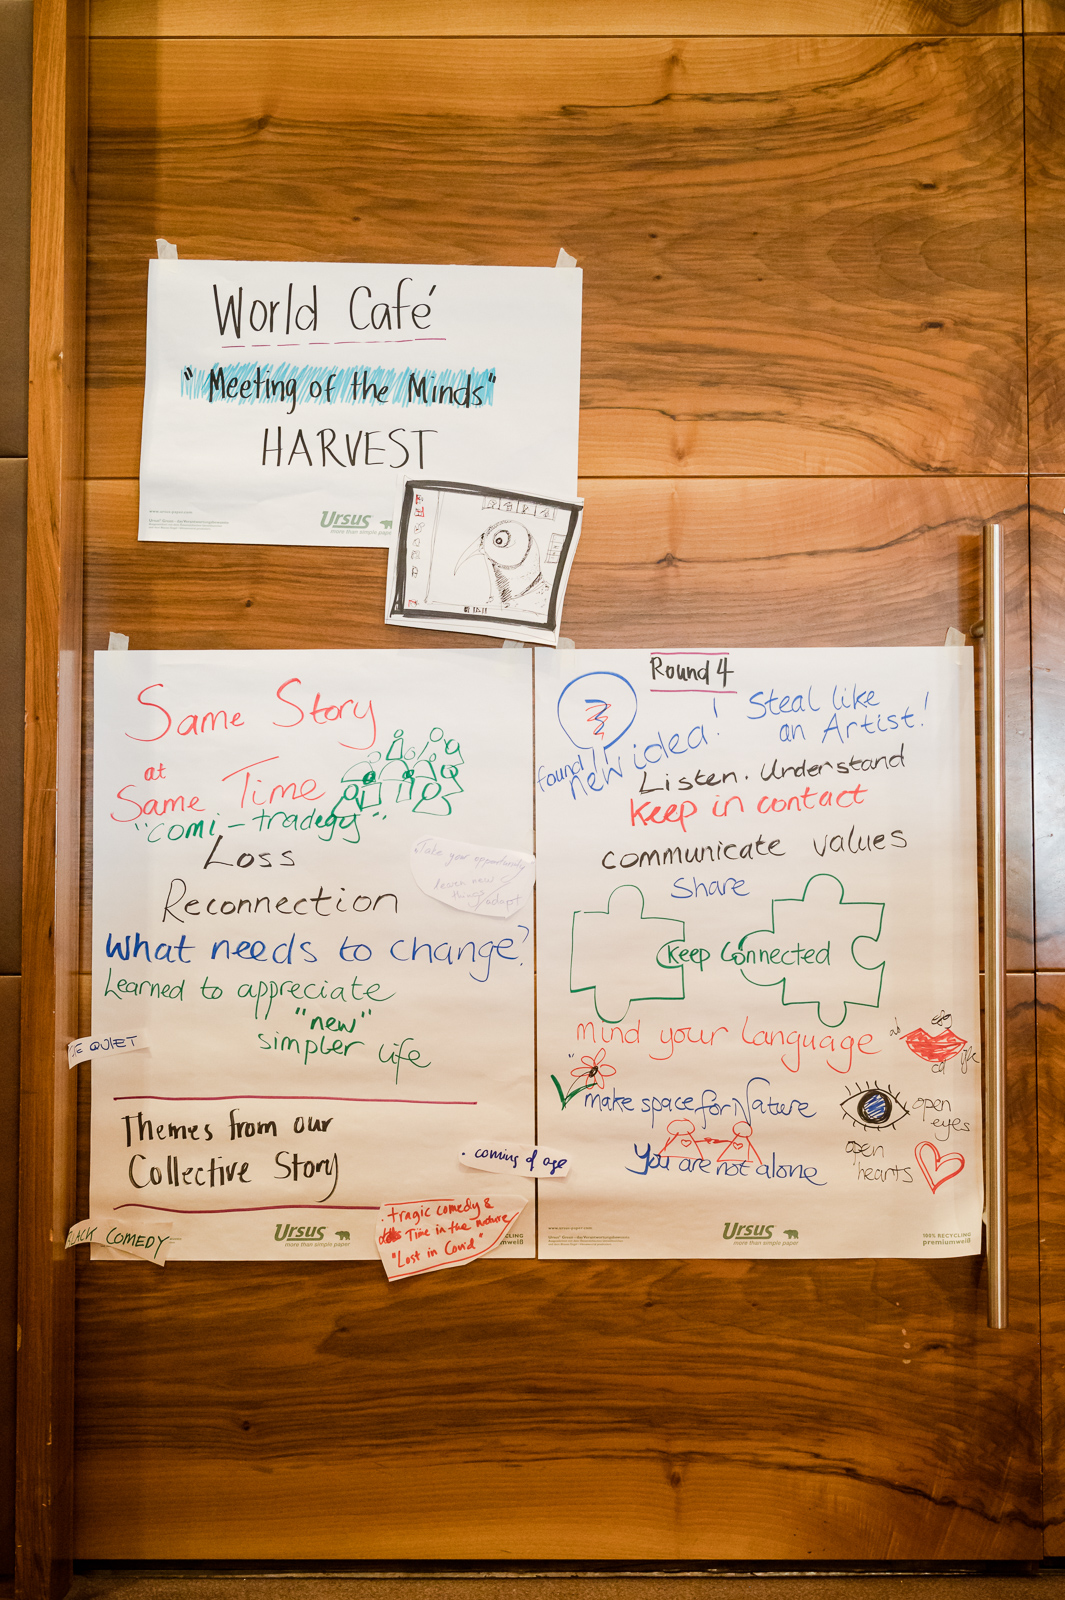 World Café
"Meeting of the Minds"
HARVEST
Ursus
more than simple paper
Same Story
at
Same Time
"comi-tradegy"
Loss
Reconnection
What needs to change?
Learned to appreciate
"new"
simpler life
BE QUIET
Take your opportunity
learn new
things/adapt
Themes from our
Collective Story
BLACK COMEDY
. coming of age
. tragic comedy &
Time in the
"Lost in Covid"
Ursus
more than simple paper
Round 4
found
new idea!
Steal like
an Artist!
Listen. Understand
Keep in contact
communicate values
Share
Keep Connected
mind your language
make space for Nature
open
eyes
You are not alone
open
hearts
Ursus
more than simple paper
100% RECYCLING
premiumweiß